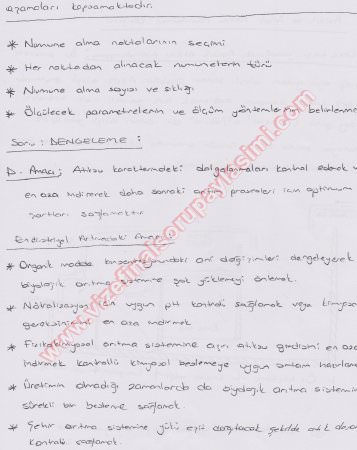 aşamaları kapsamaktadır.
* Numune alma noktalarının seçimi
* Her noktadan alınacak numunelerin türü
* Numune alma sayısı ve sıklığı
* Ölçülecek parametrelerin ve ölçüm yöntemlerinin belirlenme
Soru: DENGELEME:
D. Amacı; Atıksu karakterindeki dalgalanmaları kontrol ederek ve
en aza indirerek daha sonraki arıtım prosesleri için optimum
şartları sağlamaktır
Endüstriyel Arıtımdaki
* Organik madde konsantrasyonundaki ani değişimleri dengeleyerek
biyolojik arıtma sistemine şok yüklemeyi önlemek.
* Nötralizasyon için uygun pH kontrolü sağlamak veya kimyasal
gereksinimini en aza indirmek
* Fizikokimyasal arıtma sistemine aşırı atıksu girdisini en aza
indirmek kontrollü kimyasal beslemeye uygun ortam hazırlama
* Üretimin olmadığı zamanlarda da biyolojik arıtma sistemin
sürekli bir besleme sağlamak.
* Şehir arıtma sistemine yükü eşit dağıtacak şekilde atık
kontrolü sağlamak.
www.vizefinalsorupaylasimi.com